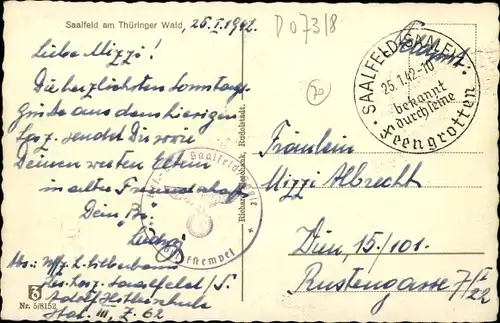 Saalfeld am Thüringer Wald, 25. I. 1942.
D 0731 8
Liebe Mizzi!
Die herzlichsten Sonntags-
grüße aus dem hiesigen
sendet Dir sowie
Deinen werten Eltern
in alter Freundschaft
Dein
Ludwig
Saalfeld
stempel
Abs:
Saalfeld/S.
Adolf Hitlerschule
III, Z. 62
Nr. 5/8152
Rudolstadt.
Feldpost.
SAALFELD (SAALE)
25.1.42-10
bekannt
durch seine
Feengrotten
Fräulein
Mizzi Albrecht
Wien, 15/101.
Rustengasse 7/I
22